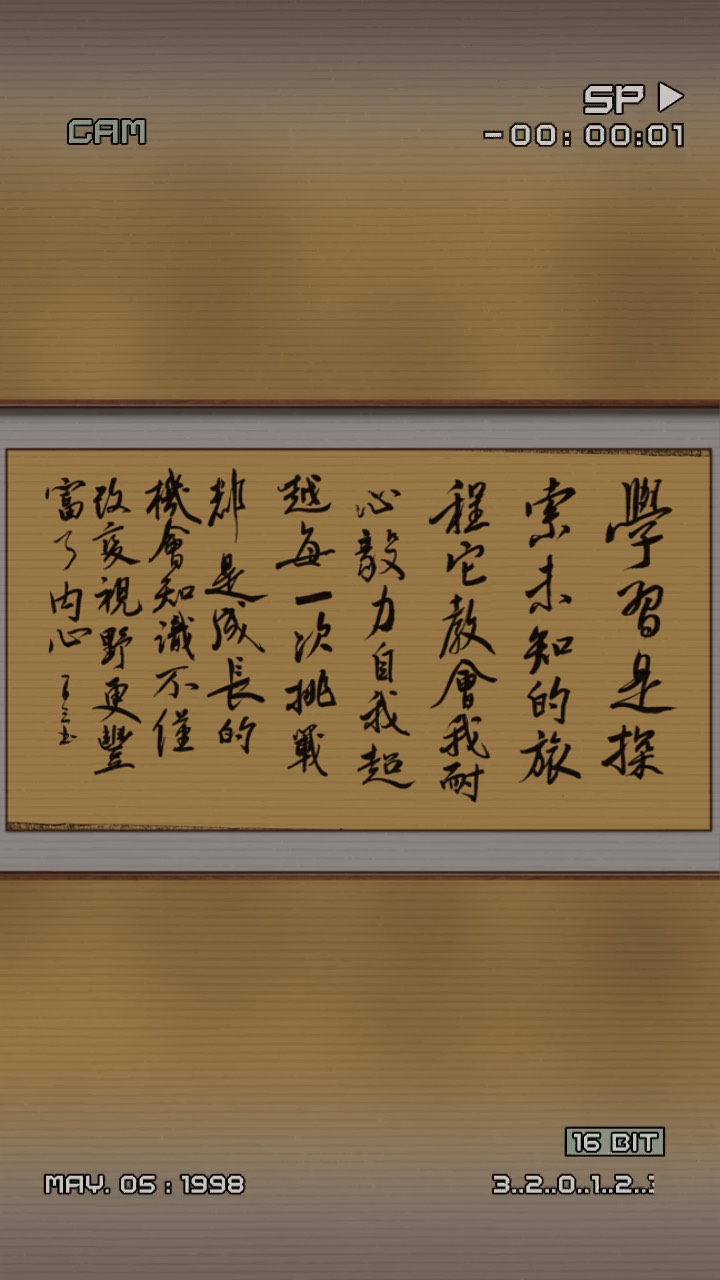 SP
CAM
-00:00:01
學習是探
索未知的旅
程它教會我耐
心毅力自我超
越每一次挑戰
都是成長的
機會知識不僅
改變視野更豐
富了内心
16 BIT
MAY. 05 : 1998
3..2..0..1..2..